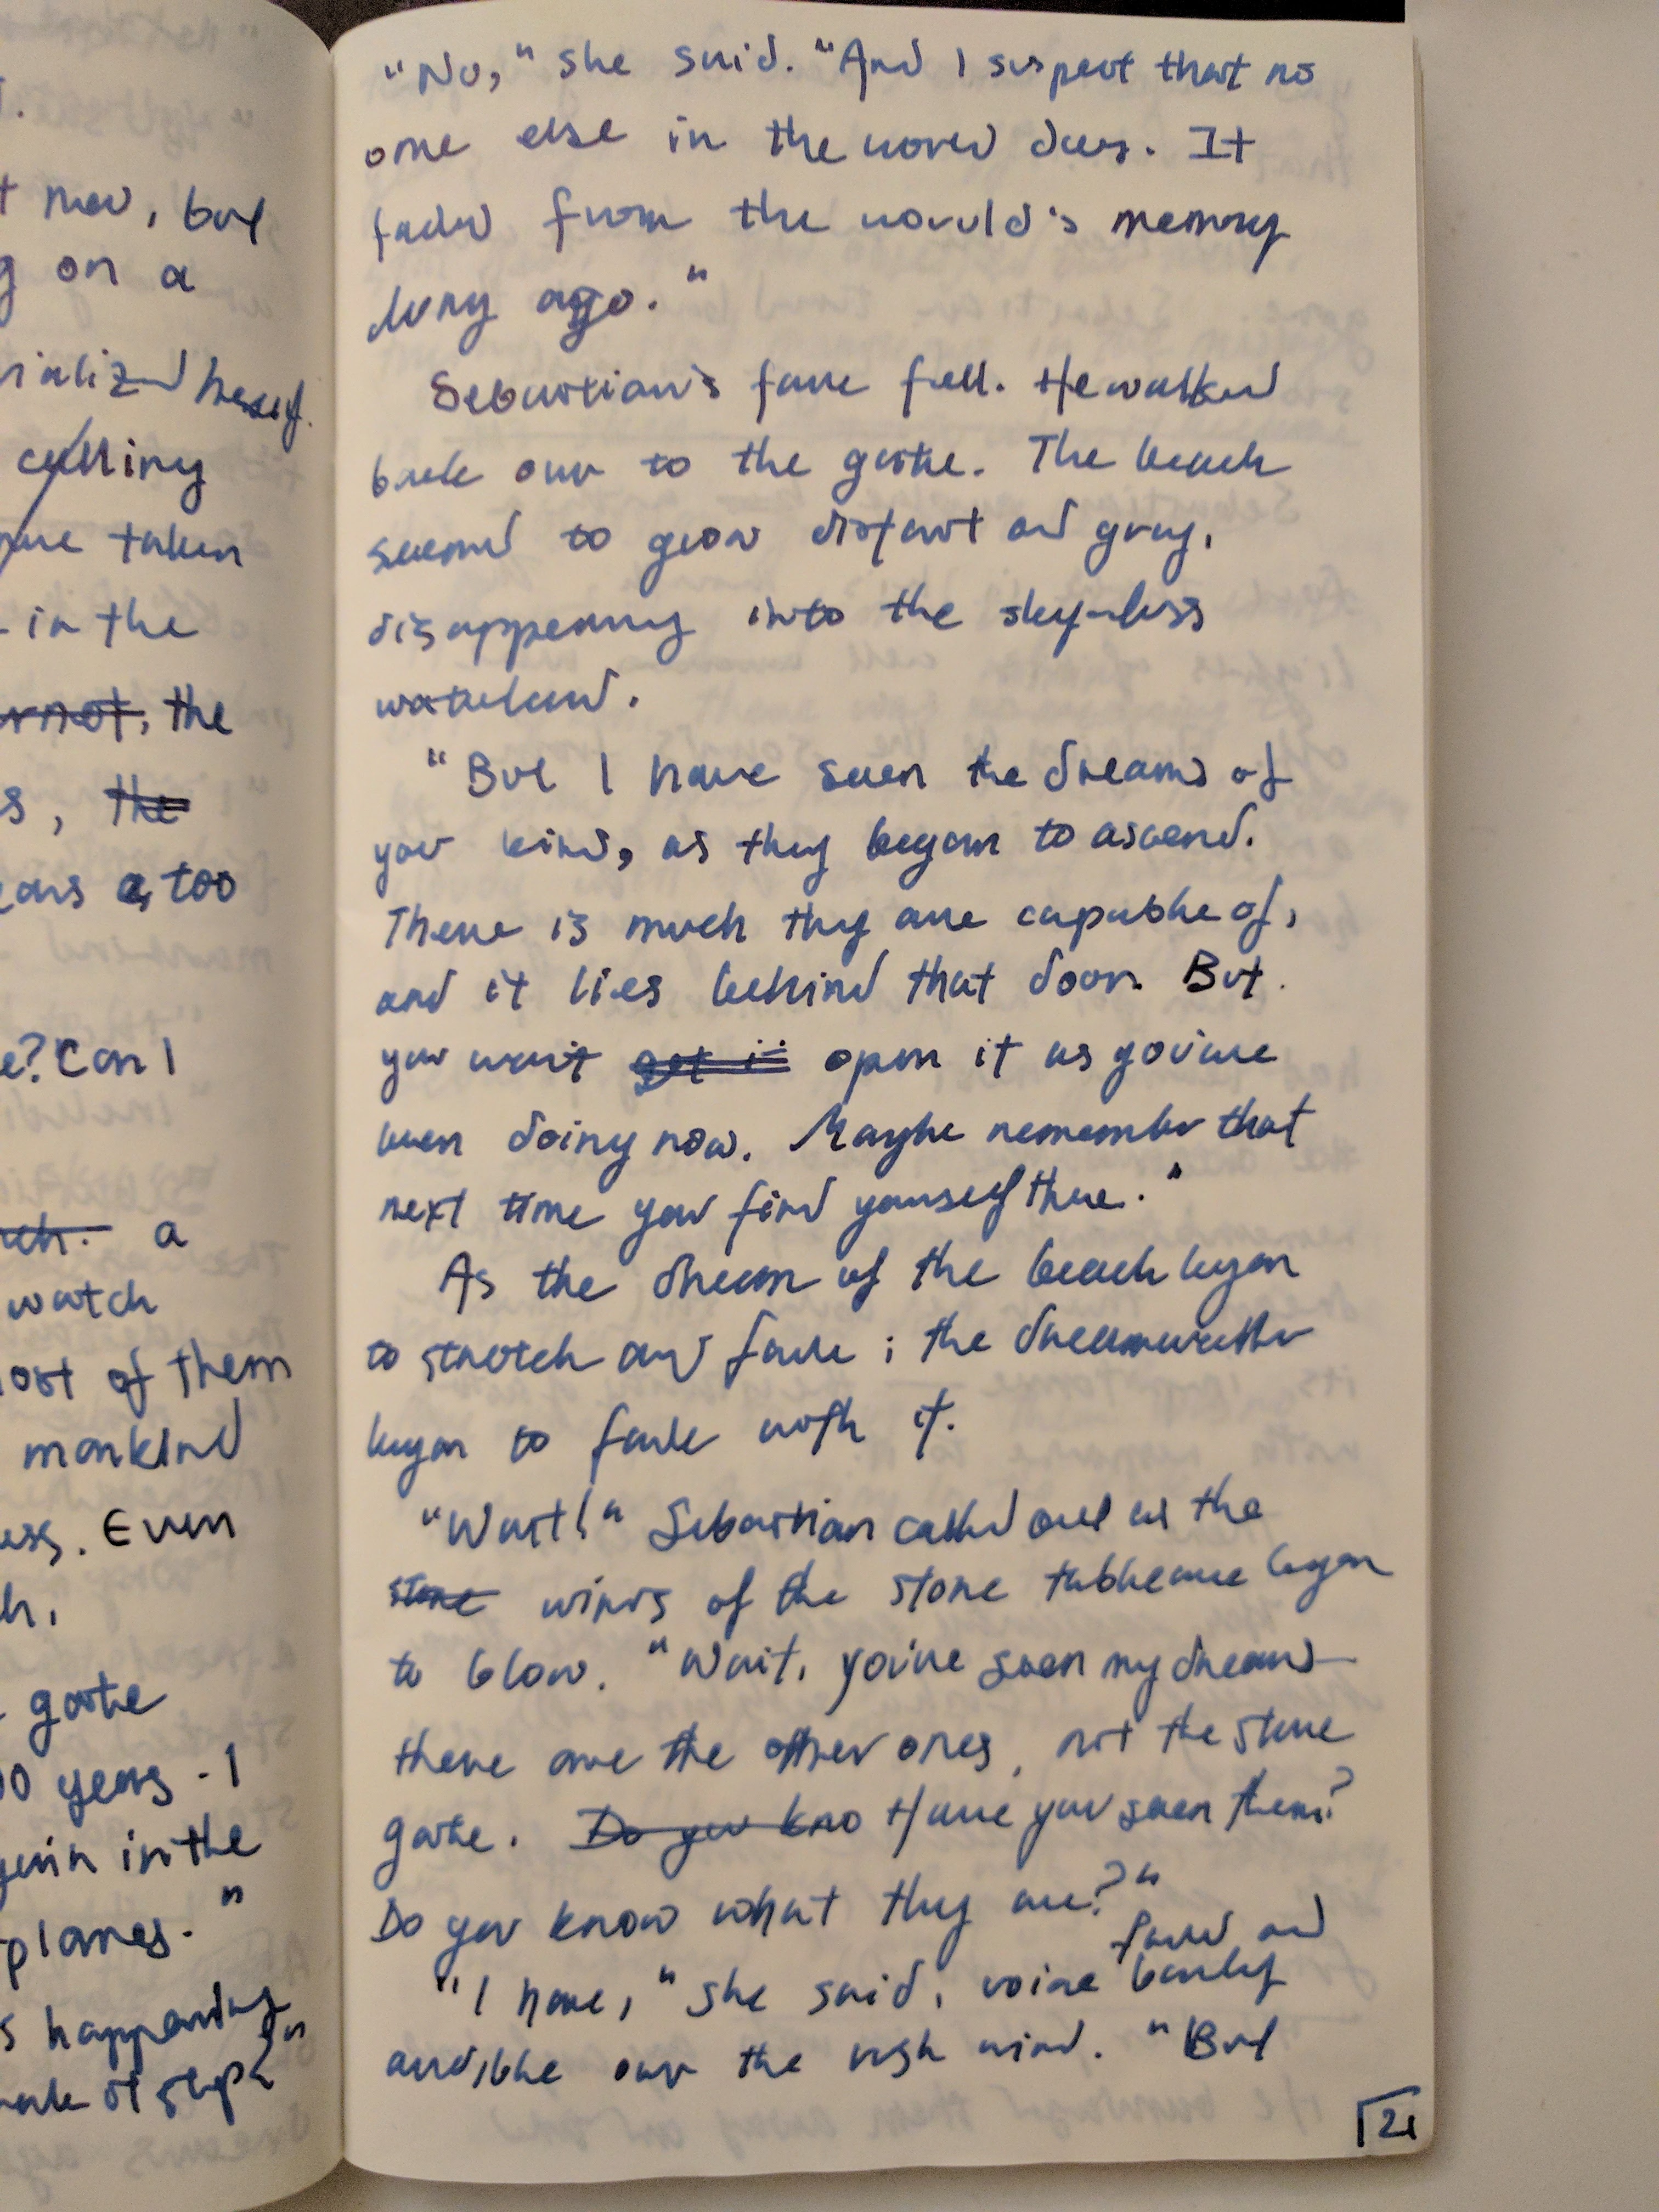 t now, but
g on a
rialized herself.
calling
taken
in the
the
s, the
ears a, too
e? Can I
a
watch
ost of them
mankind
ess. Even
h.
gate
00 years - I
in the
planes."
s happening
of sleep?"
"No," she said. "And I suspect that no
one else in the world does. It
faded from the world's memory
long ago."
Sebastian's face fell. He walked
back over to the gate. The beach
seemed to grow distant and gray,
disappearing into the sky-less
wasteland.
"But I have seen the dreams of
your kind, as they began to ascend.
There is much they are capable of,
and it lies behind that door. But
you won't get it open it as you've
been doing now. Maybe remember that
next time you find yourself there."
As the dream of the beach began
to stretch and fade, the dreamwalker
began to fade with it.
"Wait!" Sebastian called out as the
stone winds of the stone tableau began
to blow. "Wait, you've seen my dreams
there are the other ones, not the stone
gate. Do you kno Have you seen them?
Do you know what they are?"
faded and
"I have," she said, voice barely
audible over the wind. "But
21